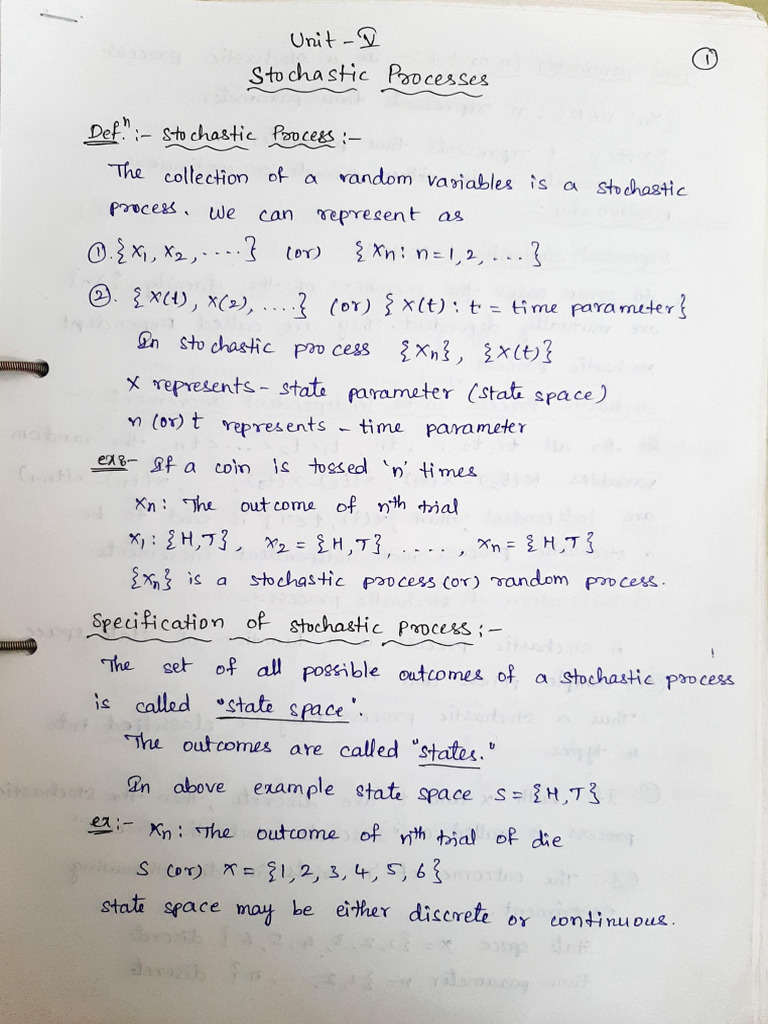 Unit - V
①
Stochastic Processes
Def.ⁿ :- Stochastic Process :-
The collection of a random variables is a stochastic
process. We can represent as
①. {X1, X2, ....} (or) {Xn : n = 1, 2, ...}
②. {X(1), X(2), ....} (or) {X(t) : t = time parameter}
In stochastic process {Xn}, {X(t)}
X represents - state parameter (state space)
n (or) t represents - time parameter
ex:- If a coin is tossed 'n' times
Xn : The outcome of nth trial
X1 : {H,T}, X2 = {H,T}, . . . . , Xn = {H,T}
{Xn} is a stochastic process (or) random process.
Specification of stochastic process :-
The set of all possible outcomes of a stochastic process
is called "state space".
The outcomes are called "states."
In above example state space S = {H,T}
ex :- Xn : The outcome of nth trial of die
S (or) X = {1, 2, 3, 4, 5, 6}
state space may be either discrete or continuous.